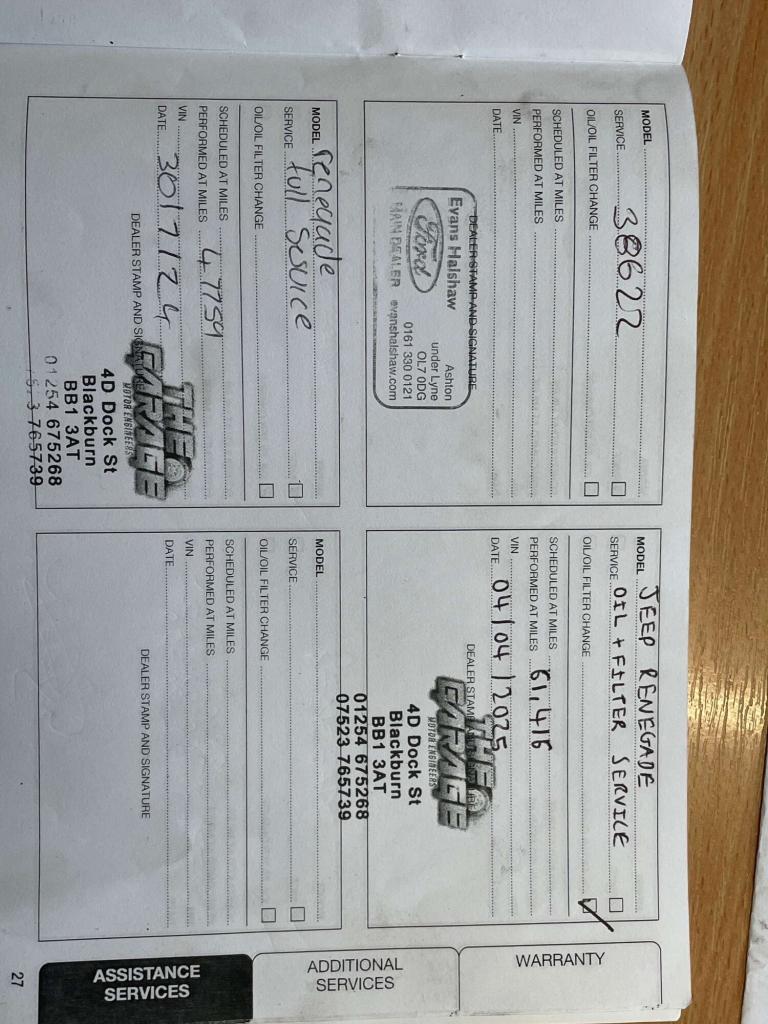 MODEL
38622
SERVICE
OIL/OIL FILTER CHANGE
SCHEDULED AT MILES
PERFORMED AT MILES
VIN
DATE
DEALER STAMP AND SIGNATURE
Evans Halshaw
Ford
MAIN DEALER
Ashton
under Lyne
OL7 0DG
0161 330 0121
evanshalshaw.com
MODEL JEEP RENEGADE
SERVICE OIL + FILTER SERVICE
OIL/OIL FILTER CHANGE
SCHEDULED AT MILES
PERFORMED AT MILES 61,416
VIN
DATE 04/04/2025
DEALER STAMP
THE
GARAGE
MOTOR ENGINEERS
4D Dock St
Blackburn
BB1 3AT
01254 675268
07523 765739
MODEL renegade
SERVICE full service
OIL/OIL FILTER CHANGE
SCHEDULED AT MILES
PERFORMED AT MILES 47759
VIN
DATE 30/7/24
DEALER STAMP AND SIGNATURE
THE
GARAGE
MOTOR ENGINEERS
4D Dock St
Blackburn
BB1 3AT
01254 675268
765739
MODEL
SERVICE
OIL/OIL FILTER CHANGE
SCHEDULED AT MILES
PERFORMED AT MILES
VIN
DATE
DEALER STAMP AND SIGNATURE
WARRANTY
ADDITIONAL
SERVICES
ASSISTANCE
SERVICES
27